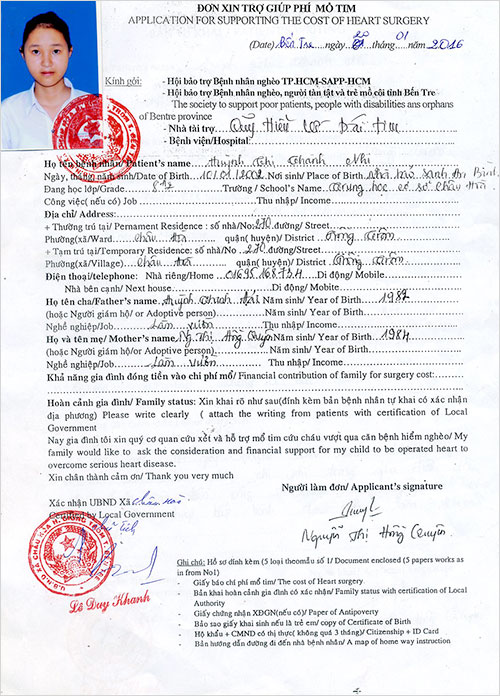 ĐƠN XIN TRỢ GIÚP PHÍ MỔ TIM
APPLICATION FOR SUPPORTING THE COST OF HEART SURGERY
(Date) Bến Tre tháng 01 2016
Kính gởi: - Hội bảo trợ Bệnh nhân nghèo TP.HCM-SAPP-HCM
- Hội bảo trợ Bệnh nhân nghèo, người tàn tật và trẻ mồ côi tỉnh Bến Tre
The society to support poor patients, people with disabilities ans orphans
of Bentre province
- Nhà tài trợ Quỹ Hiểu Về Trái Tim
- Bệnh viện/Hospital
Họ tên bệnh nhân/ Patient's name Huỳnh Thị Thanh Nhi
Ngày, tháng, năm sinh/Date of Birth 10/01/2002 Nơi sinh/ Place of Birth Nhà bảo sanh An Bình
Đang học lớp/Grade 8 Trường / School's Name Trung học cơ sở Châu Hòa
Công việc( nếu có) Job Thu nhập/ Income
Địa chỉ/ Address:
+ Thường trú tại/ Pemament Residence : số nhà/No: 270 đường/ Street
Phường(xã/Ward Châu Hòa quận( huyện)/ District Giồng Trôm
+ Tạm trú tại/Temporary Residence: số nhà/No 270 đường/Street
Phường(xã/Village) Châu Hòa quận( huyện)/ District Giồng Trôm
Điện thoại/telephone: Nhà riêng/Home 01695168734 Di động / Mobile
Nhà bên cạnh/ Next house Di động/ Mobite
Họ tên cha/Father's name Huỳnh Thanh Hải Năm sinh/ Year of Birth 1982
(hoặc Người giám hộ/ or Adoptive person) Năm sinh/ Year of Birth
Nghề nghiệp/Job Làm vườn Thu nhập/ Income
Họ và tên mẹ/ Mother's name Ng Thị Hồng Quyên Năm sinh/ Year of Birth 1984
(hoặc Người giám hộ/ or Adoptive person) Năm sinh/ Year of Birth
Nghề nghiệp/Job Làm vườn Thu nhập/ Income
Khả năng gia đình đóng tiền vào chi phí mổ/ Financial contribution of family for surgery cost:
Hoàn cảnh gia đình/ Family status: Xin khai rõ như sau(đính kèm bản bệnh nhân tự khai có xác nhận
địa phương) Please write clearly ( attach the writing from patients with certification of Local
Government
Nay gia đình tôi xin quý cơ quan cứu xét và hỗ trợ mổ tim cứu cháu vượt qua căn bệnh hiểm nghèo/ My
family would like to ask the consideration and financial support for my child to be operated heart to
overcome serious heart disease.
Xin chân thành cảm ơn/ Thank you very much
Người làm đơn/ Applicant's signature
Xác nhận UBND Xã Châu Hòa
Certified by Local Government
Chủ Tịch
Nguyễn Thị Hồng Quyên
Lê Duy Khanh
Ghi chú: Hồ sơ đính kèm (5 loại theo mẫu số 1/ Document enclosed (5 papers works as
in from No1)
- Giấy báo chi phí mổ tim/ The cost of Heart surgery
- Bản khai hoàn cảnh gia đình có xác nhận/ Family status with certification of Local
Authority
- Giấy chứng nhận XĐGN(nếu có)/ Paper of Antipoverty
- Bảo sao giấy khai sinh nếu là trẻ em/ copy of Certificate of Birth
- Hộ khẩu + CMND có thị thực( không quá 3 tháng)/ Citizenship + ID Card
- Bản hướng dẫn đường đi đến nhà bệnh nhân/ A map of home way instruction